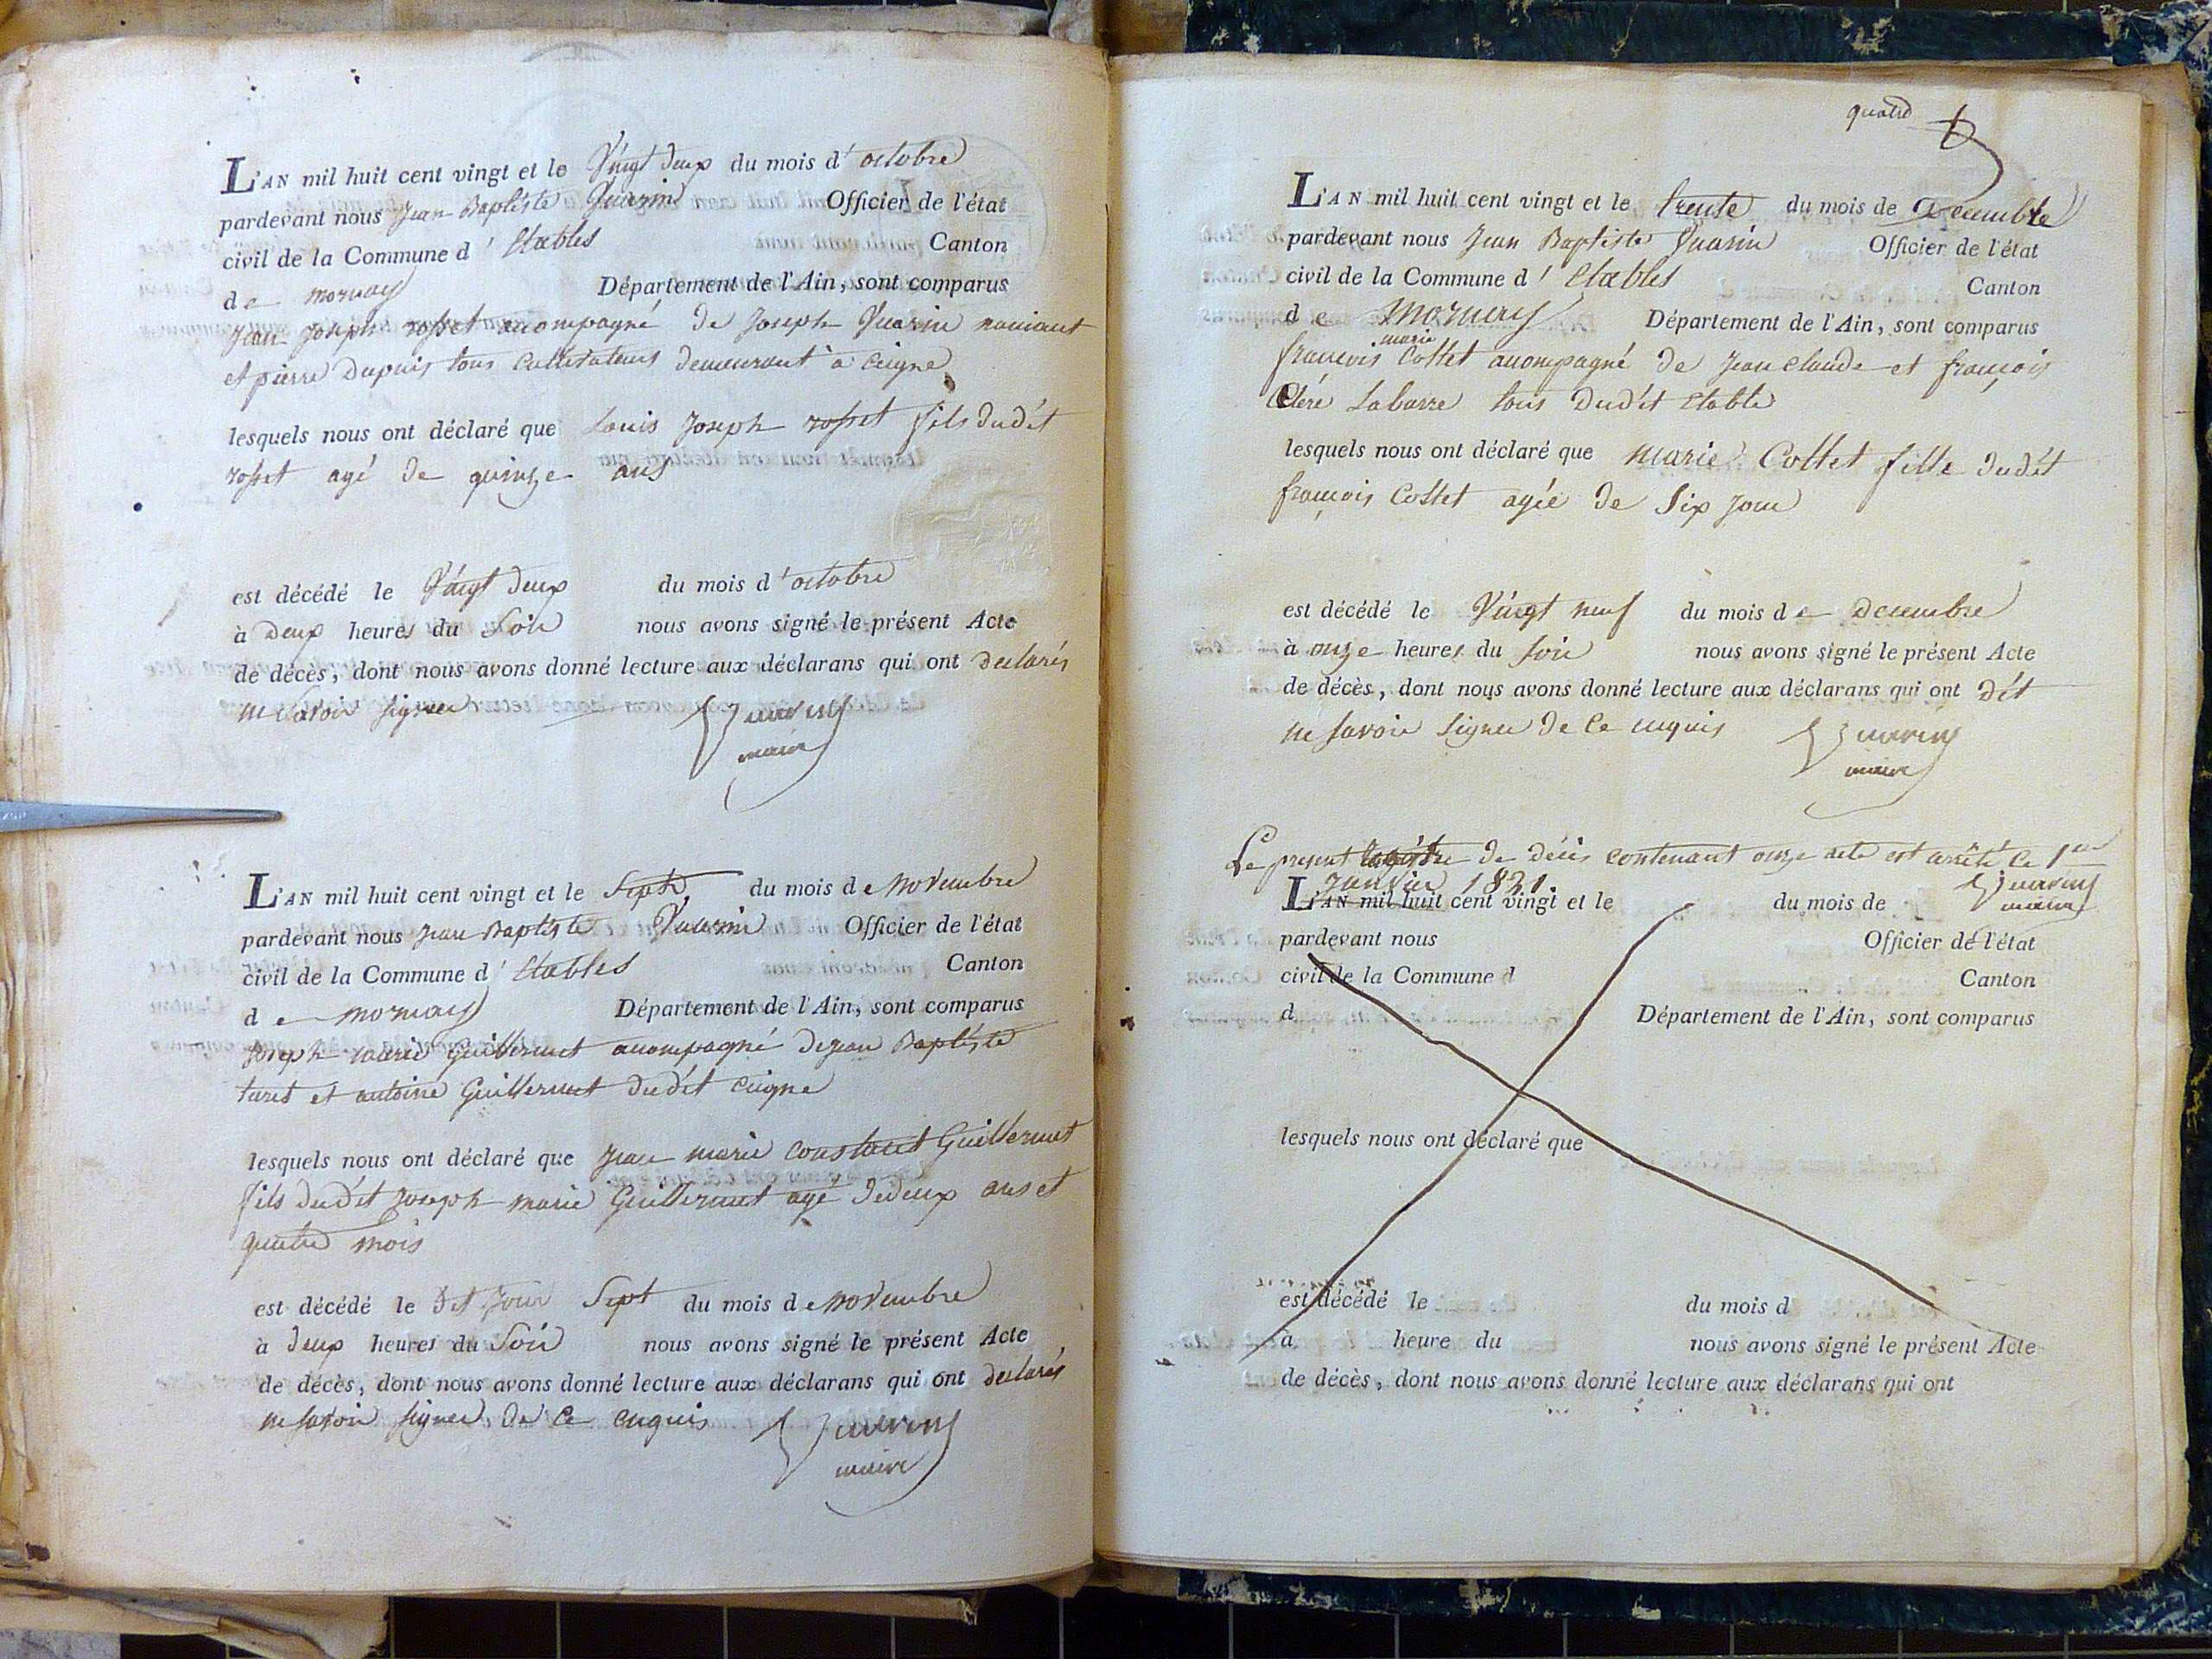 L'AN mil huit cent vingt et le Vingt deux du mois d'octobre
pardevant nous Jean Baptiste Quarin Officier de l'état
civil de la Commune d'Etables Canton
de mornay Département de l'Ain, sont comparus
Jean Joseph rosset acompagné de Joseph Quarin
et pierre Dupuis tous Cultivateurs demeurant à Ceigne
lesquels nous ont déclaré que Louis Joseph rosset fils dudit
rosset agé de quinze ans
est décédé le Vingt deux du mois d'octobre
à Deux heures du Soir nous avons signé le présent Acte
de décès, dont nous avons donné lecture aux déclarans qui ont declarés
ne Savoir signer Quarin
maire
L'AN mil huit cent vingt et le Sept du mois de Novembre
pardevant nous Jean Baptiste Quarin Officier de l'état
civil de la Commune d'Etables Canton
de mornay Département de l'Ain, sont comparus
Joseph marie Guillermet acompagné de Jean Baptiste
turet et antoine Guillermet dudit Ceigne
lesquels nous ont déclaré que Jean marie Constant Guillermet
fils dudit Joseph marie Guillermet agé de deux ans et
quatre mois
est décédé le dit Jour Sept du mois de Novembre
à deux heures du Soir nous avons signé le présent Acte
de décès, dont nous avons donné lecture aux déclarans qui ont declarés
ne Savoir signer de Ce enquis Quarin
maire
quatre
L'AN mil huit cent vingt et le trente du mois de Decembre
pardevant nous Jean Baptiste Quarin Officier de l'état
civil de la Commune d'Etables Canton
de Mornay Département de l'Ain, sont comparus
marie
françois Collet acompagné de Jean Claude et françois
Labarre tous Dudit Etable
lesquels nous ont déclaré que marie Collet fille dudit
françois Collet agée de Six Jour
est décédé le Vingt neuf du mois de Decembre
à onze heures du Soir nous avons signé le présent Acte
de décès, dont nous avons donné lecture aux déclarans qui ont dit
ne Savoir Signer de Ce enquis Quarin
maire
Le present registre de décès contenant onze acte est arrêté Ce 1er
Janvier 1821. Quarin
maire
L'AN mil huit cent vingt et le du mois de
pardevant nous Officier de l'état
civil de la Commune d Canton
d Département de l'Ain, sont comparus
lesquels nous ont déclaré que
est décédé le du mois d
à heure du nous avons signé le présent Acte
de décès, dont nous avons donné lecture aux déclarans qui ont